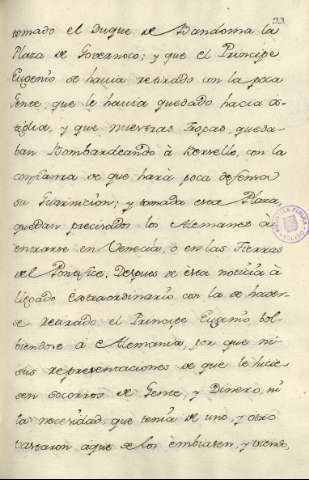 33
tomado el Duque de Bandoma la
Plaza de Governolo; y que el Principe
Eugenio se havia retirado con la poca
Gente, que le havia quedado hacia Os-
tiglia, y que nuestras Tropas queda-
ban Bombardeando à Berselo, con la
confianza de que hará poca defensa
su Guarnicion; y tomada esta Plaza,
quedan precisados los Alemanes à
entrarse en Venecia, ò en las Tierras
del Pontifice; Despues de esta noticia à
llegado Extraordinario con la de haver-
se retirado el Principe Eugenio bol-
biendose á Alemania, por que ni
sus representaciones de que le hicie-
sen socorros de Gente, y Dinero, ni
la necesidad que tenia de uno, y otro
bastaron à que se los embiasen, y viendo,